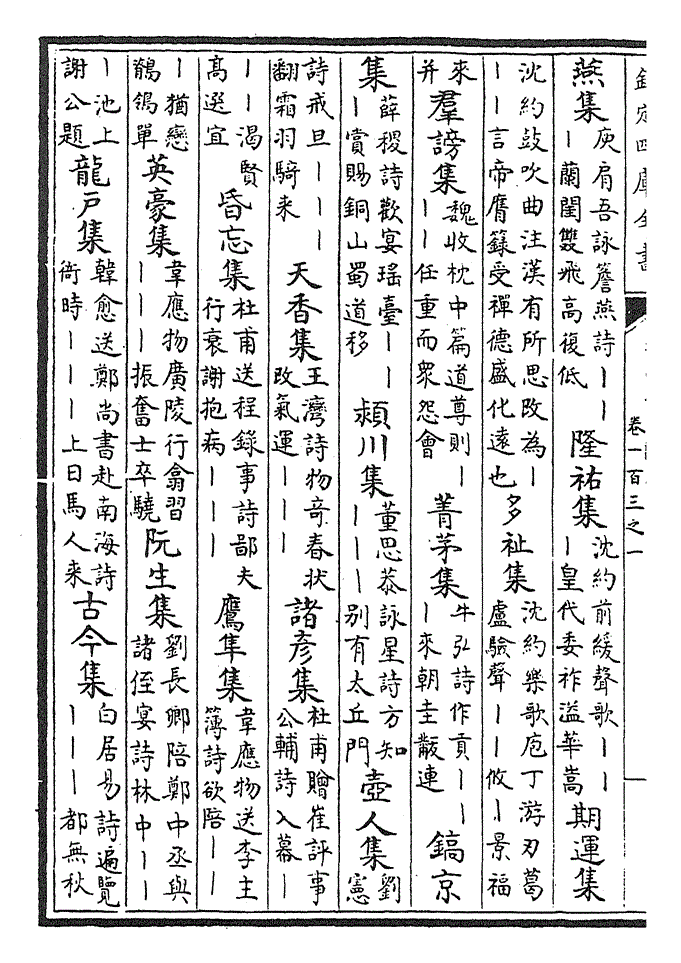 欽定四庫全書 卷一百三之一
燕集 庾肩吾詠簷燕詩丨丨丨蘭閨雙飛高復低 隆祐集 沈約前緩聲歌丨丨丨皇代委祚溢華嵩 期運集
沈約鼓吹曲注漢有所思改為丨丨丨言帝膺籙受禪德盛化遠也 多祉集 沈約樂歌庖丁游刃葛盧驗聲丨丨攸丨景福
來并 羣謗集 魏收枕中篇道尊則丨丨丨任重而衆怨會 菁茅集 牛弘詩作貢丨丨丨來朝圭黻連 鎬京
集 薛稷詩歡宴瑤臺丨丨丨賞賜銅山蜀道移 潁川集 董思恭詠星詩方知丨丨丨别有太丘門 壺人集 劉憲
詩戒旦丨丨丨翻霜羽騎来 天香集 王灣詩物竒春狀改氣運丨丨丨 諸彦集 杜甫贈崔評事公輔詩入幕丨
丨丨渴賢高選宜 昏忘集 杜甫送程錄事詩鄙夫行衰謝抱病丨丨丨 鷹隼集 韋應物送李主簿詩欲陪丨丨
丨猶戀鶺鴒單 英豪集 韋應物廣陵行翕習丨丨丨振奮士卒驍 阮生集 劉長卿陪鄭中丞與諸侄宴詩林中丨丨
丨池上謝公題 龍戸集 韓愈送鄭尚書赴南海詩衙時丨丨丨上日馬人来 古今集 白居易詩遍覽丨丨丨都無秋